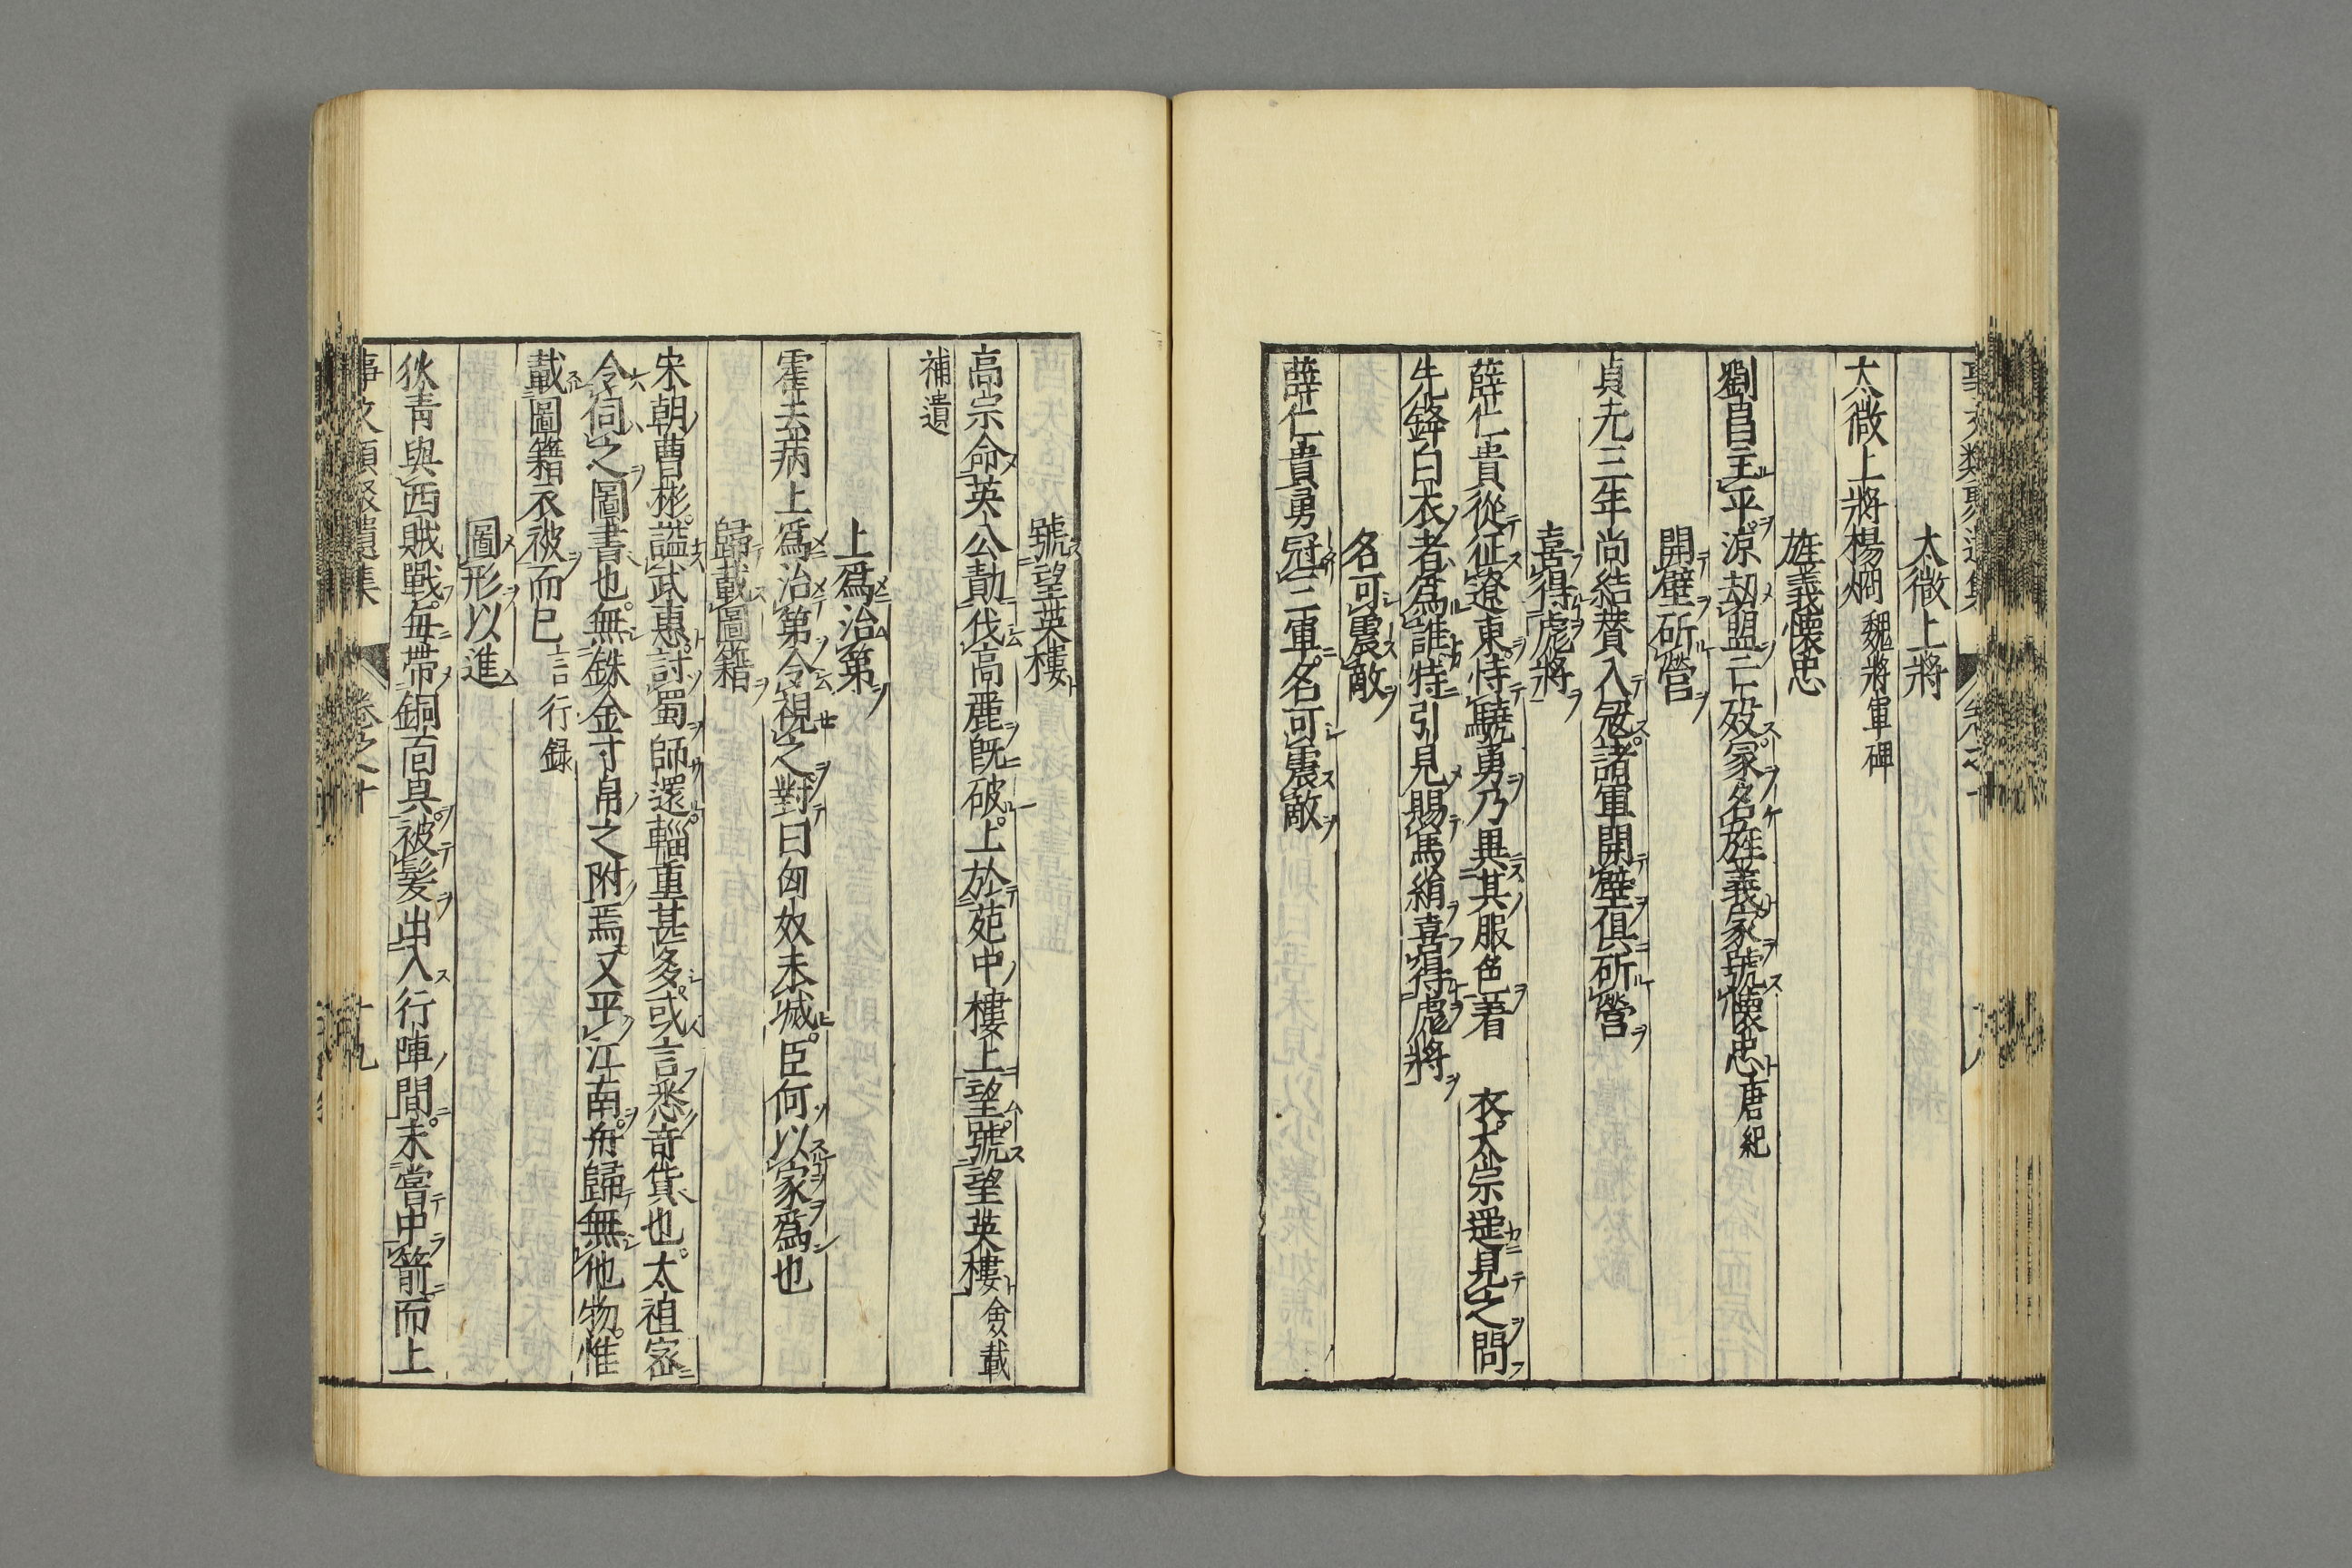 太微上將
太微上將楊烱魏將軍碑
旌義懷忠
劉昌主平涼劫盟亡殁冢名旌義冢號懷忠唐紀
開壁斫營
貞元三年尚結贊入冦諸軍開壁俱斫營
喜得虎將
薛仁貴從征遼東恃驍勇乃異其服色著衣太宗遥見之問
先鋒白衣者爲誰特引見賜馬絹喜得虎將
名可震敵
薛仁貴勇冠三軍名可震敵
號望英樓
高宗命英公勣伐高麗旣破上於苑中樓上望號望英樓僉載
補遺
上爲治第
霍去病上爲治第令視之對曰匈奴未滅臣何以家爲也
歸載圖籍
宋朝曹彬謚武惠討蜀師還輜重甚多或言悉奇貨也太祖宻
令伺之圖書也無銖金寸帛之附焉又平江南舟歸無他物惟
載圖籍衣被而已言行録
圖形以進
狄青與西賊戰每帶銅面具被髪出入行陣間未嘗中箭而上
事文類聚遺集 卷之十 十九